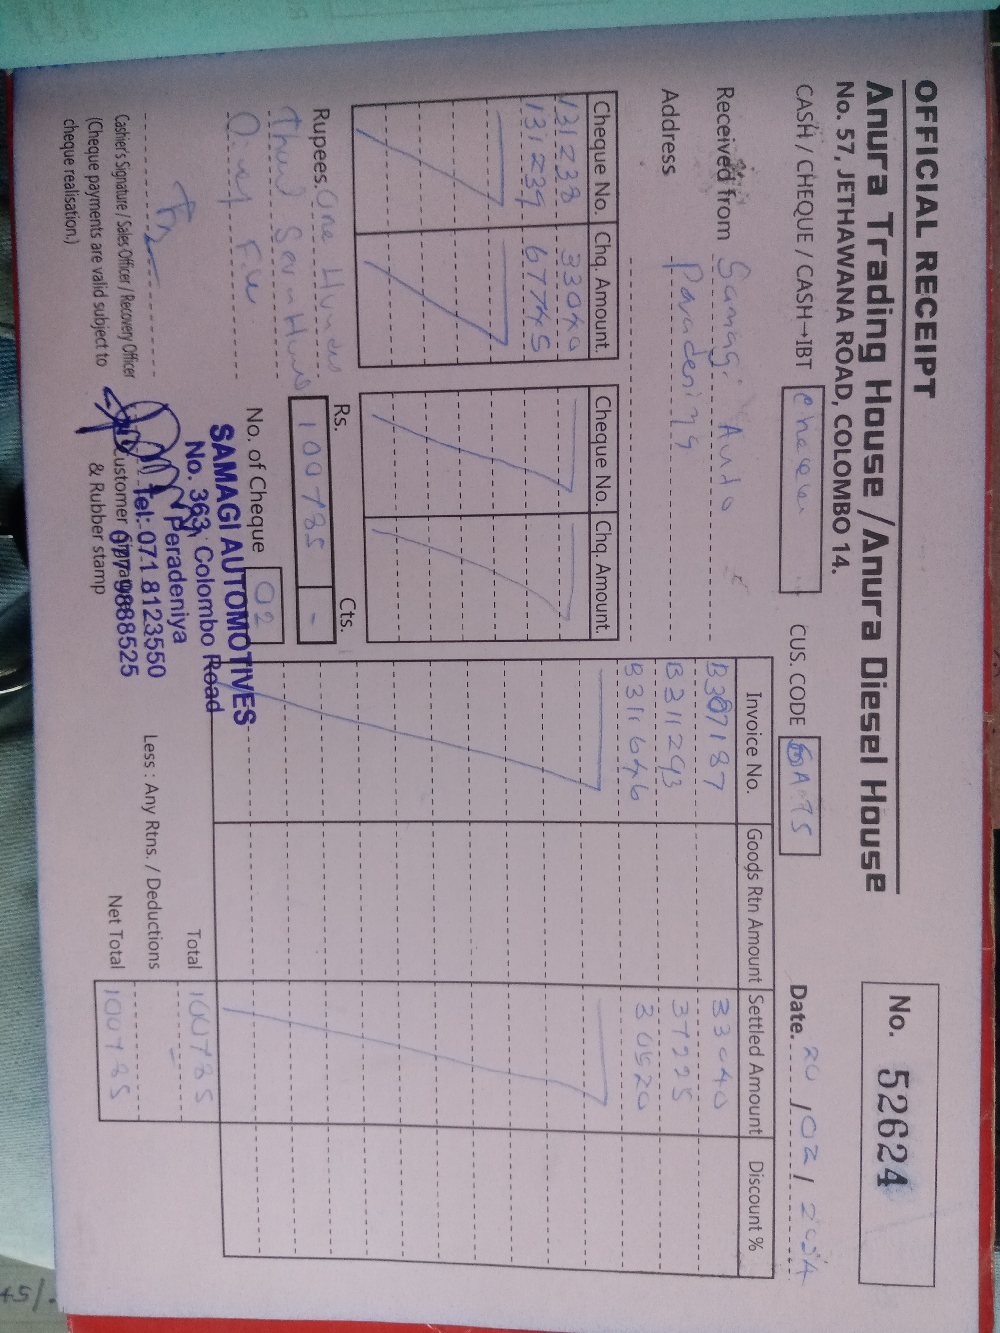 OFFICIAL RECEIPT
Anura Trading House / Anura Diesel House
No. 57, JETHAWANA ROAD, COLOMBO 14.
No. 52624
CASH / CHEQUE / CASH→IBT
CUS. CODE
Date. 20 / 02 / 2024
Received from Samagi Auto
Address Paradeniya
Cheque No. Chq. Amount. Cheque No. Chq. Amount.
131238 33040
131239 67745
Invoice No. Goods Rtn Amount Settled Amount Discount %
B307187 33040
B311293
B311646
Rupees. One
Rs. Cts.
100785 -
No. of Cheque 02
Total 100785
Less : Any Rtns. / Deductions
Net Total 100785
Cashier's Signature / Sales Officer / Recovery Officer
(Cheque payments are valid subject to
cheque realisation.)
Customer Signature
& Rubber stamp
SAMAGI AUTOMOTIVES
No. 363, Colombo Road
Peradeniya
Tel: 071 8123550
077 9888525